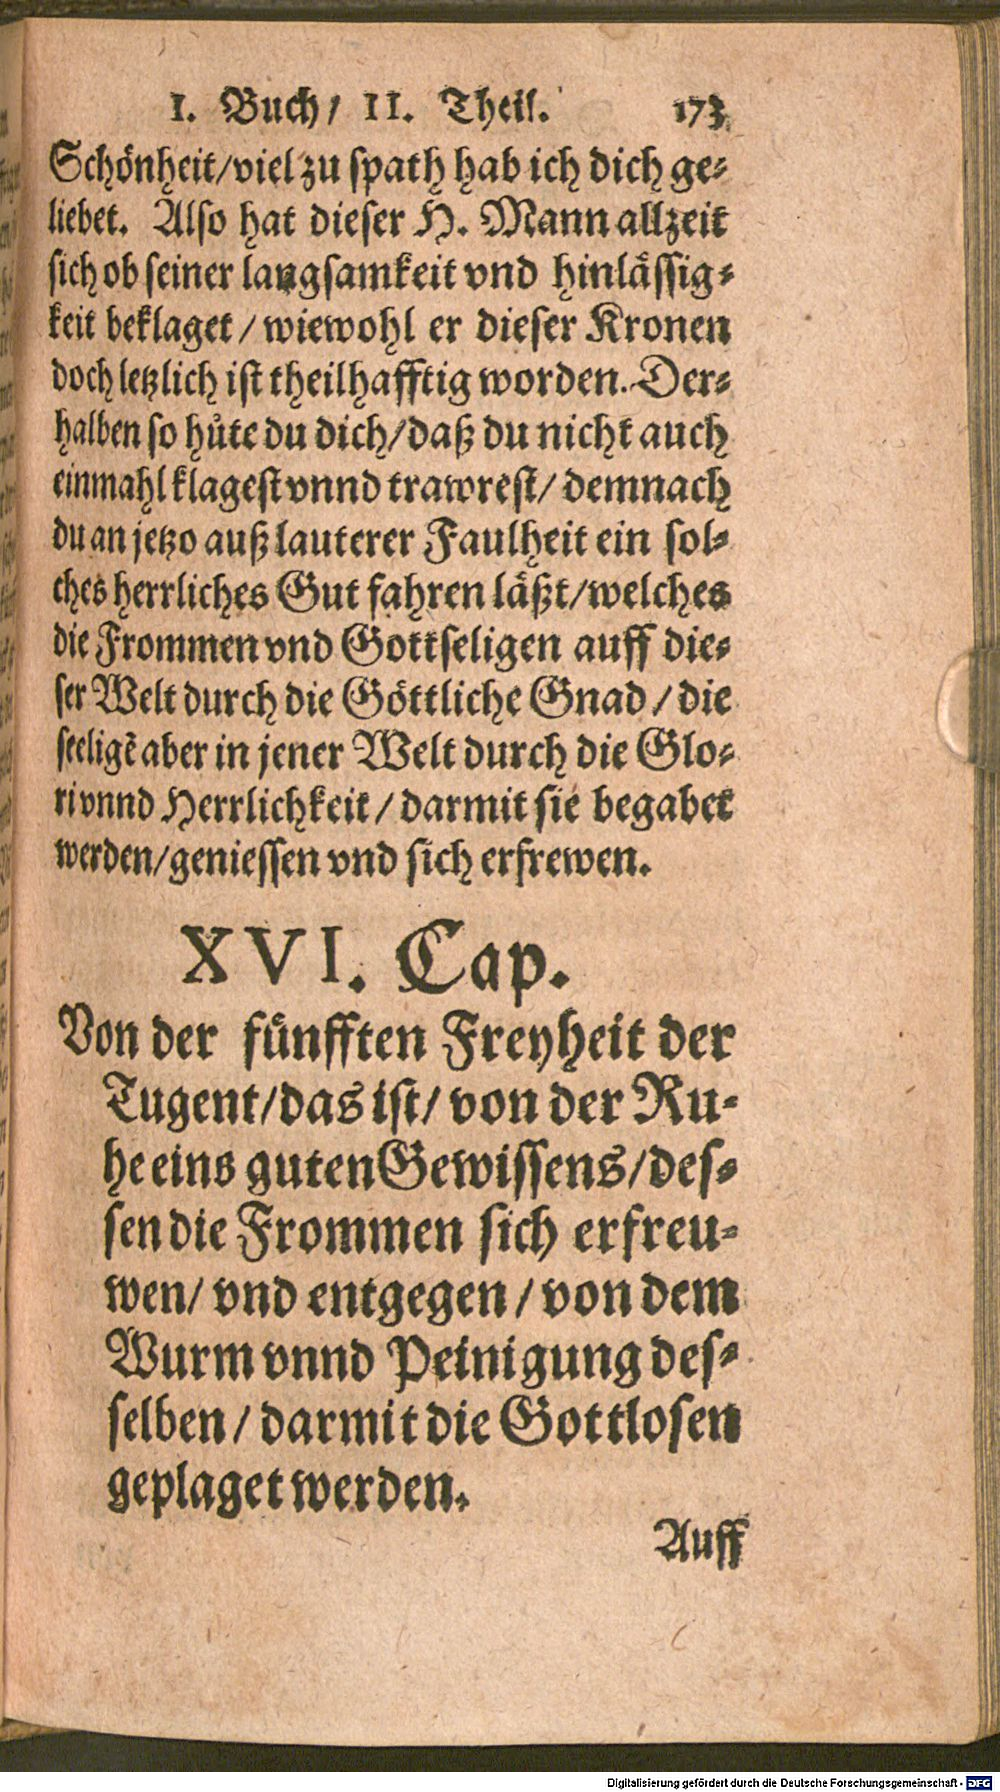 I. Buch/ II. Theil. 173
Schönheit/viel zu spath hab ich dich ge-
liebet. Also hat dieser H. Mann allzeit
sich ob seiner langsamkeit vnd hinlässig-
keit beklaget/ wiewohl er dieser Kronen
doch letzlich ist theilhafftig worden. Der-
halben so hüte du dich/daß du nicht auch
einmahl klagest vnnd trawrest/ demnach
du an jetzo auß lauterer Faulheit ein sol-
ches herrliches Gut fahren läßt/welches
die Frommen vnd Gottseligen auff die-
ser Welt durch die Göttliche Gnad/ die
seeligẽ aber in jener Welt durch die Glo-
ri vnnd Herrlichkeit/ darmit sie begabet
werden/geniessen vnd sich erfrewen.
XVI. Cap.
Von der fünfften Freyheit der
Tugent/das ist/ von der Ru-
he eins guten Gewissens/des-
sen die Frommen sich erfreu-
wen/ vnd entgegen/ von dem
Wurm vnnd Peinigung des-
selben/ darmit die Gottlosen
geplaget werden.
Auff
Digitalisierung gefördert durch die Deutsche Forschungsgemeinschaft - DFG